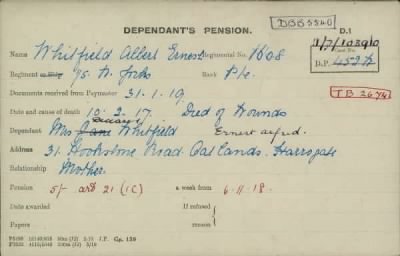 DEPENDANT'S PENSION.
DBB 5540
D.1
Name Whitfield Albert Ernest Regimental No. 1608
Case No.
D.P.
Regiment or Ship 15. W. Yorks Rank Pte.
Documents received from Paymaster 31-1-19
TB 2674
Date and cause of death 10-2-17. Died of Wounds
Dependant Mrs Jane Whitfield Ernest alfred.
Address 31. Hookstone Road. Oatlands. Harrogate
Relationship Mother.
Pension 5/- art 21 (1C) a week from 6-11-18.
Date awarded If refused
Papers reason
Gp. 139